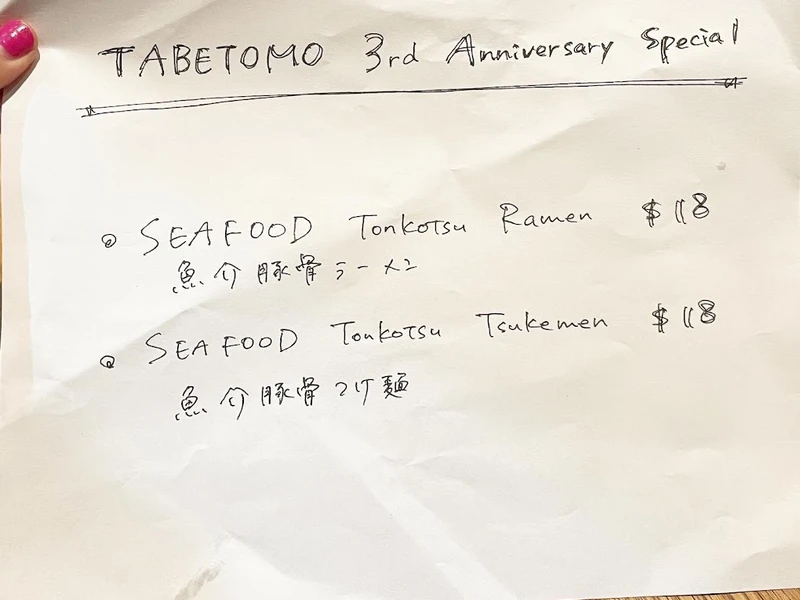 TABETOMO 3rd Anniversary Special
SEAFOOD Tonkotsu Ramen $18
魚介豚骨ラーメン
SEAFOOD Tonkotsu Tsukemen $18
魚介豚骨つけ麺